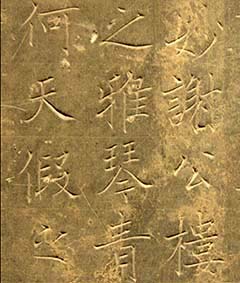 妙謝公樓
之雅琴青
何天假之